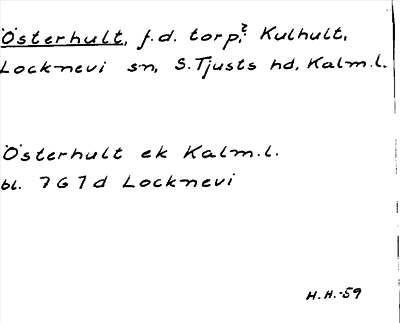 Österhult, f.d. torp,? Kulhult,
Locknevi sn, S. Tjusts hd, Kalm.l.
Österhult ek Kalm.l.
bl. 7G7d Locknevi
H.H.-59